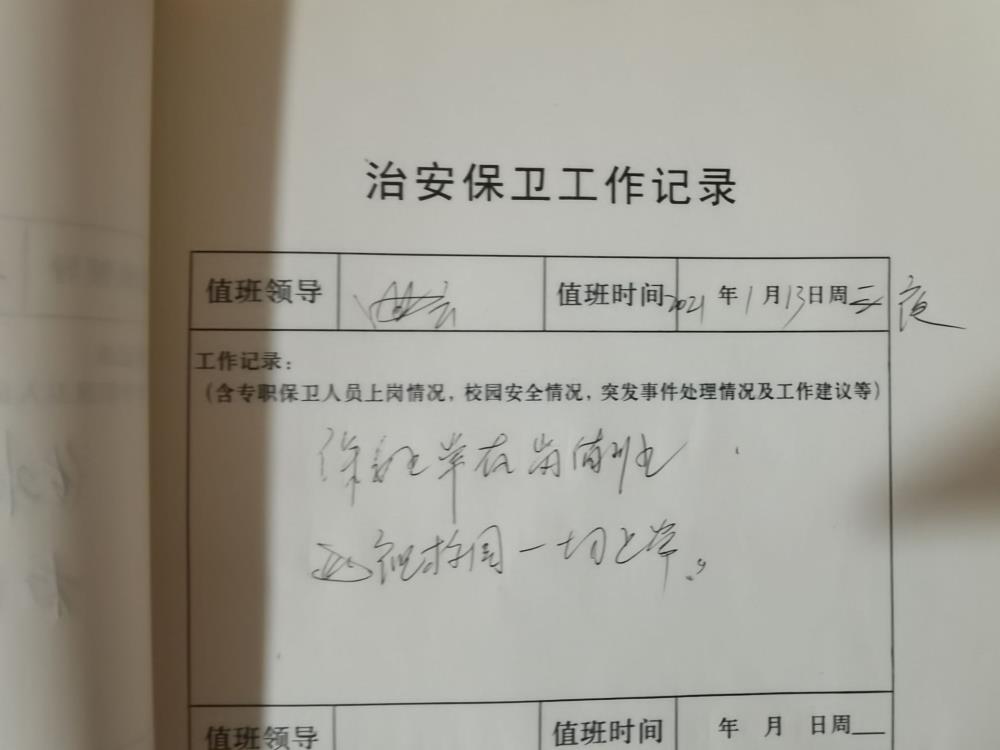 治安保卫工作记录
值班领导 值班时间 2021年1月13日周三夜
工作记录：
（含专职保卫人员上岗情况，校园安全情况，突发事件处理情况及工作建议等）
在岗值班
巡视校园一切正常。
值班领导 值班时间 年 月 日周